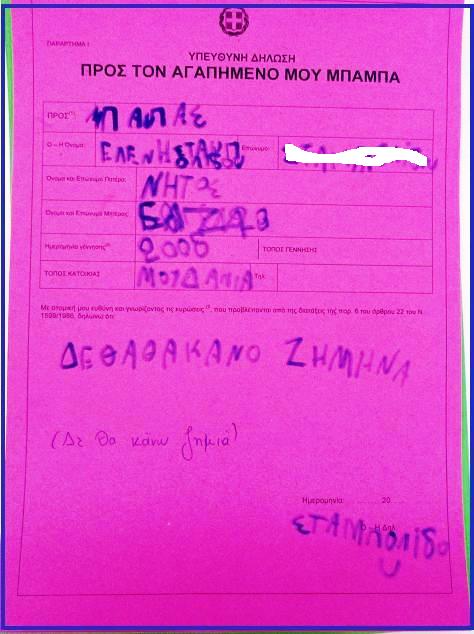 ΠΑΡΑΡΤΗΜΑ Ι
ΥΠΕΥΘΥΝΗ ΔΗΛΩΣΗ
ΠΡΟΣ ΤΟΝ ΑΓΑΠΗΜΕΝΟ ΜΟΥ ΜΠΑΜΠΑ
ΠΡΟΣ(1): ΜΠΑΜΠΑΣ
Ο – Η Όνομα: ΕΛΕΝΗ Επώνυμο:
Όνομα και Επώνυμο Πατέρα: ΝΗΤΟΣ
Όνομα και Επώνυμο Μητέρας:
Ημερομηνία γέννησης(2): 2005 ΤΟΠΟΣ ΓΕΝΝΗΣΗΣ
ΤΟΠΟΣ ΚΑΤΟΙΚΙΑΣ ΜΟΥΔΑΝΙΑ Τηλ
Με ατομική μου ευθύνη και γνωρίζοντας τις κυρώσεις (3), που προβλέπονται από της διατάξεις της παρ. 6 του άρθρου 22 του Ν.
1599/1986, δηλώνω ότι:
ΔΕΘΑΘΑΚΑΝΟ ΖΗΜΗΝΑ
(Δε θα κάνω ζημιά)
Ημερομηνία: ……….20……
Ο – Η Δηλ.
ΣΤΑΜΠΟΛΙΔΟΥ